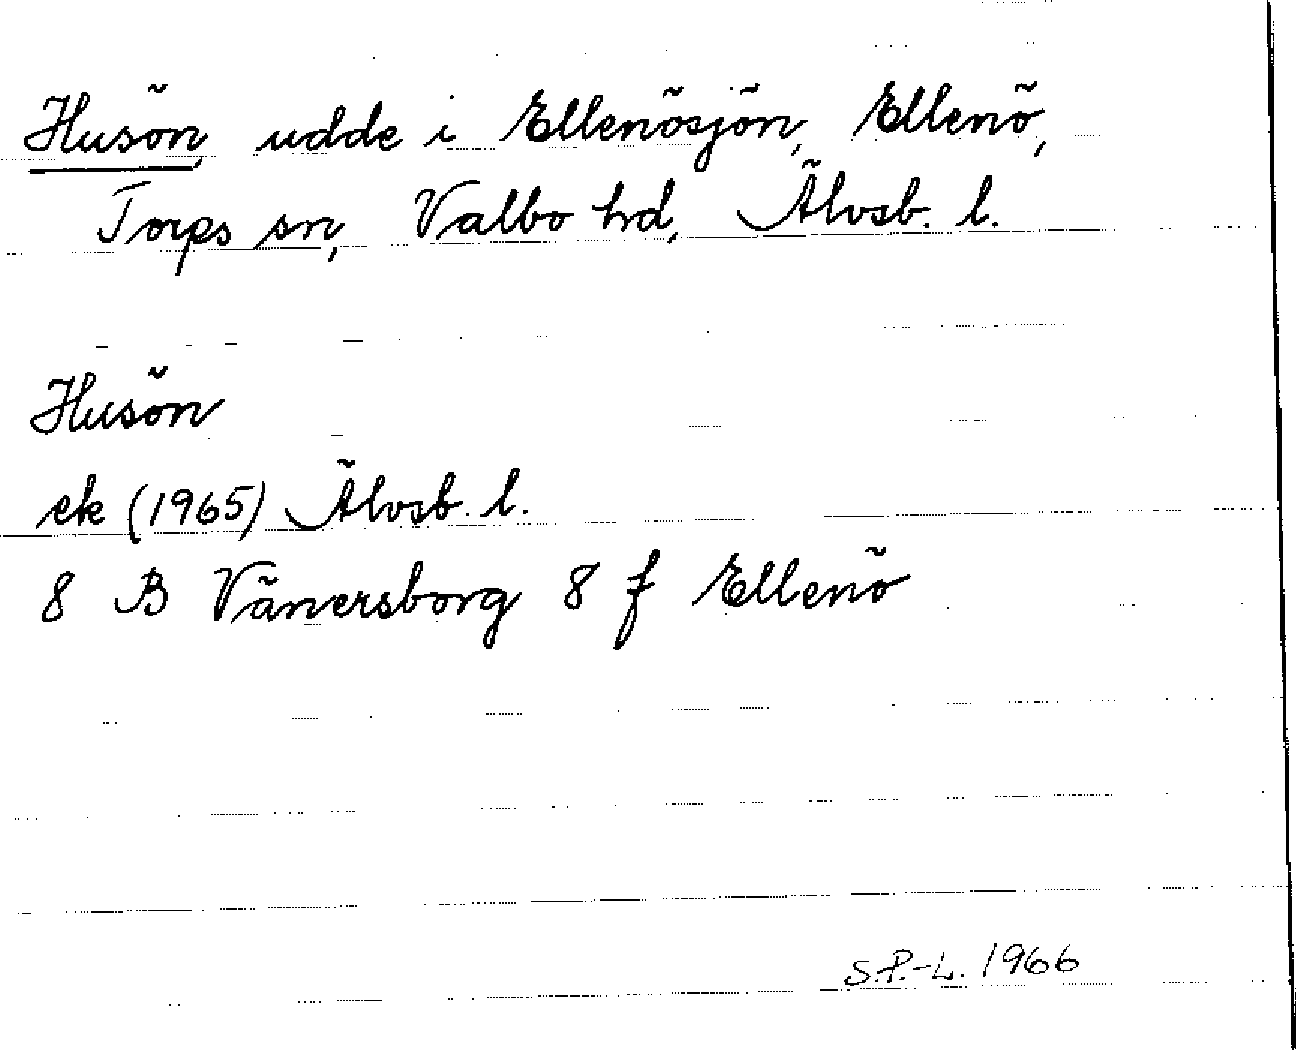 Husön, udde i Ellenösjön, Ellenö,
Torps sn, Valbo hd, Älvsb. l.
Husön
ek (1965) Älvsb. l.
8 B Vänersborg 8 f Ellenö
S.P.-L. 1966